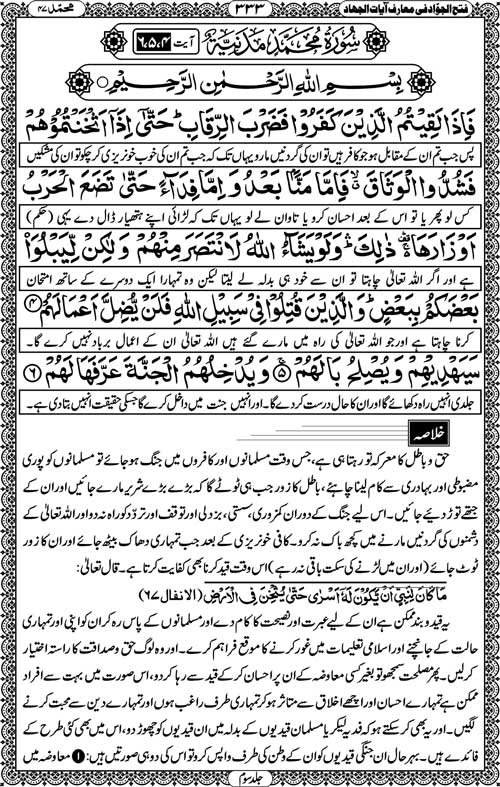 فتح الجوّاد فی معارف آیات الجهاد ۳۳۳ محمّد ۴۷
سُورَةُ مُحَمَّدٍ مَدَنِيَّةٌ آیت ۴،۵،۶
بِسْمِ اللهِ الرَّحْمٰنِ الرَّحِيْمِ
فَاِذَا لَقِيْتُمُ الَّذِيْنَ كَفَرُوْا فَضَرْبَ الرِّقَابِ ؕ حَتّٰۤى اِذَاۤ اَثْخَنْتُمُوْهُمْ
پس جب تم ان کے مقابل ہو جو کافر ہیں تو ان کی گردنیں مارو یہاں تک کہ جب تم ان کی خوب خونریزی کر چکو تو ان کی مشکیں
فَشُدُّوا الْوَثَاقَ ۙ فَاِمَّا مَنًّۢا بَعْدُ وَ اِمَّا فِدَآءً حَتّٰى تَضَعَ الْحَرْبُ
کس لو پھر یا تو اس کے بعد احسان کرو یا تاوان لے لو یہاں تک کہ لڑائی اپنے ہتھیار ڈال دے یہی (حکم)
اَوْزَارَهَا ۛ ذٰلِكَ ۛ وَ لَوْ يَشَآءُ اللهُ لَانْتَصَرَ مِنْهُمْ وَ لٰكِنْ لِّيَبْلُوَا۟
ہے اور اگر اللہ تعالی چاہتا تو ان سے خود ہی بدلہ لے لیتا لیکن وہ تمہارا ایک دوسرے کے ساتھ امتحان
بَعْضَكُمْ بِبَعْضٍ ؕ وَ الَّذِيْنَ قُتِلُوْا فِيْ سَبِيْلِ اللهِ فَلَنْ يُّضِلَّ اَعْمَالَهُمْ ۴
کرنا چاہتا ہے اور جو اللہ تعالی کی راہ میں مارے گئے ہیں اللہ تعالی ان کے اعمال برباد نہیں کرے گا۔
سَيَهْدِيْهِمْ وَ يُصْلِحُ بَالَهُمْ ۵ وَ يُدْخِلُهُمُ الْجَنَّةَ عَرَّفَهَا لَهُمْ ۶
جلدی انہیں راہ دکھائے گا اور ان کا حال درست کر دے گا۔ اور انہیں جنت میں داخل کرے گا جسکی حقیقت انہیں بتا دی ہے۔
خلاصہ
حق و باطل کا معرکہ تو رہتا ہی ہے، جس وقت مسلمانوں اور کافروں میں جنگ ہو جائے تو مسلمانوں کو پوری
مضبوطی اور بہادری سے کام لینا چاہئے، باطل کا زور جب ہی ٹوٹے گا کہ بڑے بڑے شریر مارے جائیں اور ان کے
جتھے توڑ دیئے جائیں۔ اس لیے جنگ کے دوران کمزوری، سستی، بزدلی اور توقف اور تردّد کو راہ نہ دو اور اللہ تعالی کے
دشمنوں کی گردنیں مارنے میں کچھ باک نہ کرو۔ کافی خونریزی کے بعد جب تمہاری دھاک بیٹھ جائے اور ان کا زور
ٹوٹ جائے (اور ان میں لڑنے کی سکت باقی نہ رہے) اس وقت قید کرنا بھی کفایت کرتا ہے۔ قال تعالیٰ:
مَا كَانَ لِنَبِيٍّ اَنْ يَّكُوْنَ لَهٗۤ اَسْرٰى حَتّٰى يُثْخِنَ فِي الْاَرْضِ (الانفال ۶۷)
یہ قید و بند ممکن ہے ان کے لیے عبرت اور نصیحت کا کام دے اور مسلمانوں کے پاس رہ کر ان کو اپنی اور تمہاری
حالت کے جانچنے اور اسلامی تعلیمات میں غور کرنے کا موقع فراہم کرے۔ اور وہ لوگ حق و صداقت کا راستہ اختیار
کر لیں۔ پھر مصلحت سمجھو تو بغیر کسی معاوضہ کے ان پر احسان کر کے قید سے رہا کر دو، اس صورت میں بہت سے افراد
ممکن ہے تمہارے احسان اور اچھے اخلاق سے متاثر ہو کر تمہاری طرف راغب ہوں اور تمہارے دین سے محبت کرنے
لگیں۔ اور یہ بھی کر سکتے ہو کہ فدیہ لیکر یا مسلمان قیدیوں کے بدلہ میں ان قیدیوں کو چھوڑ دو، اس میں بھی کئی طرح کے
فائدے ہیں۔ بہرحال ان جنگی قیدیوں کو ان کے وطن کی طرف واپس کرو تو اس کی دو ہی صورتیں ہیں: ۱ معاوضہ میں
جلد سوم